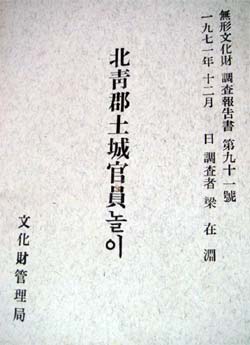 無形文化財 調査報告書 第九十一號
一九七一年 十二月 日 調査者 梁在淵
北靑郡土城官員놀이
文化財管理局